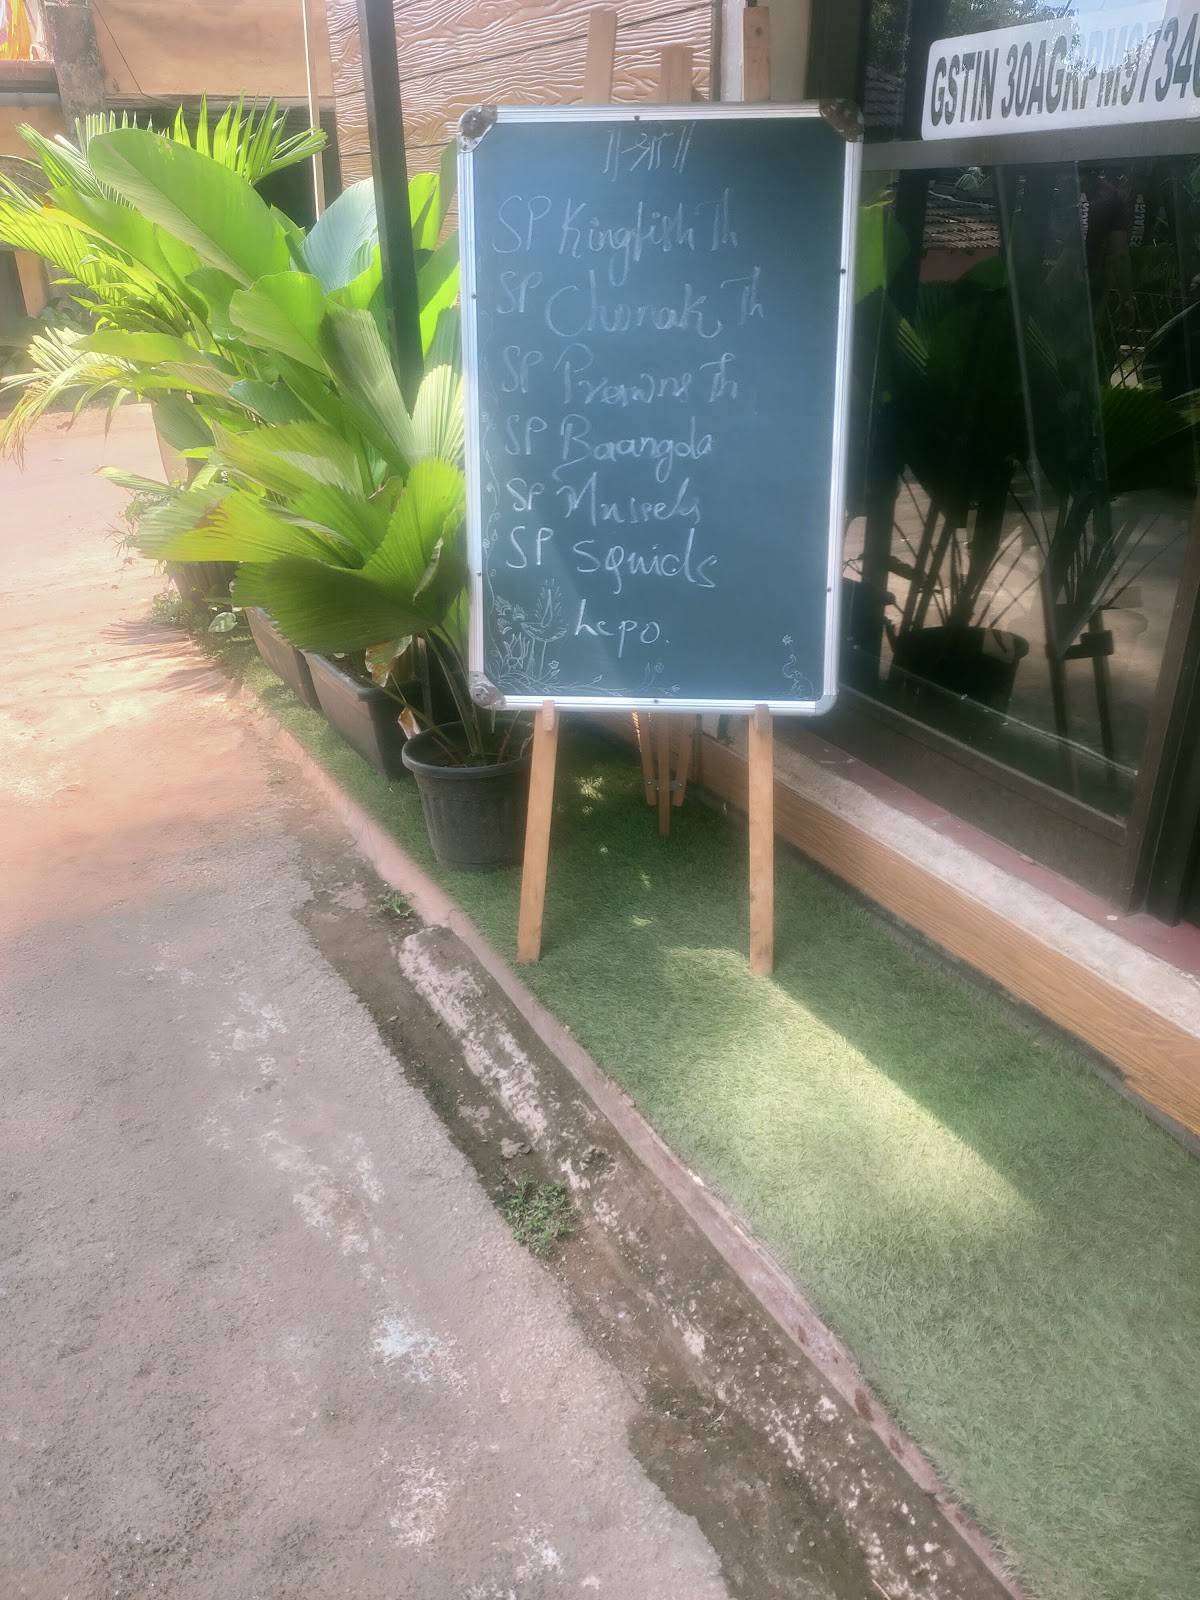 ॥ श्री ॥
SP Kingfish Th
SP Chonak Th
SP Prawns Th
SP Baangda
SP Mussels
SP Squids
Lepo.
GSTIN 30AGKPM9734